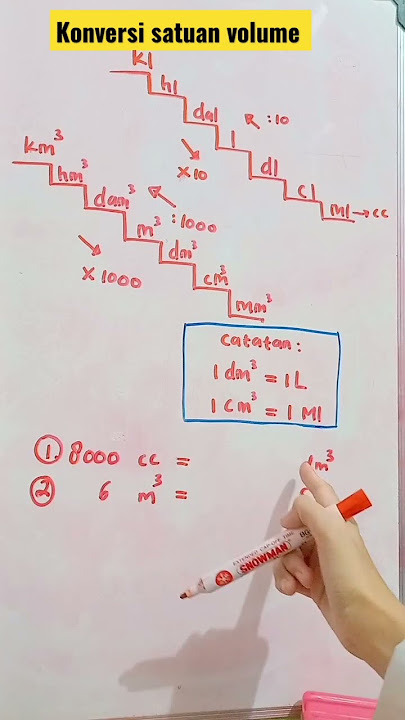 Konversi satuan volume
kl
hl
dal
l
dl
cl
ml → cc
:10
x10
km³
hm³
dam³
m³
dm³
cm³
mm³
:1000
x 1000
catatan:
1 dm³ = 1L
1 cm³ = 1 Ml
1. 8000 cc = dm³
2 6 m³ =
SNOWMAN